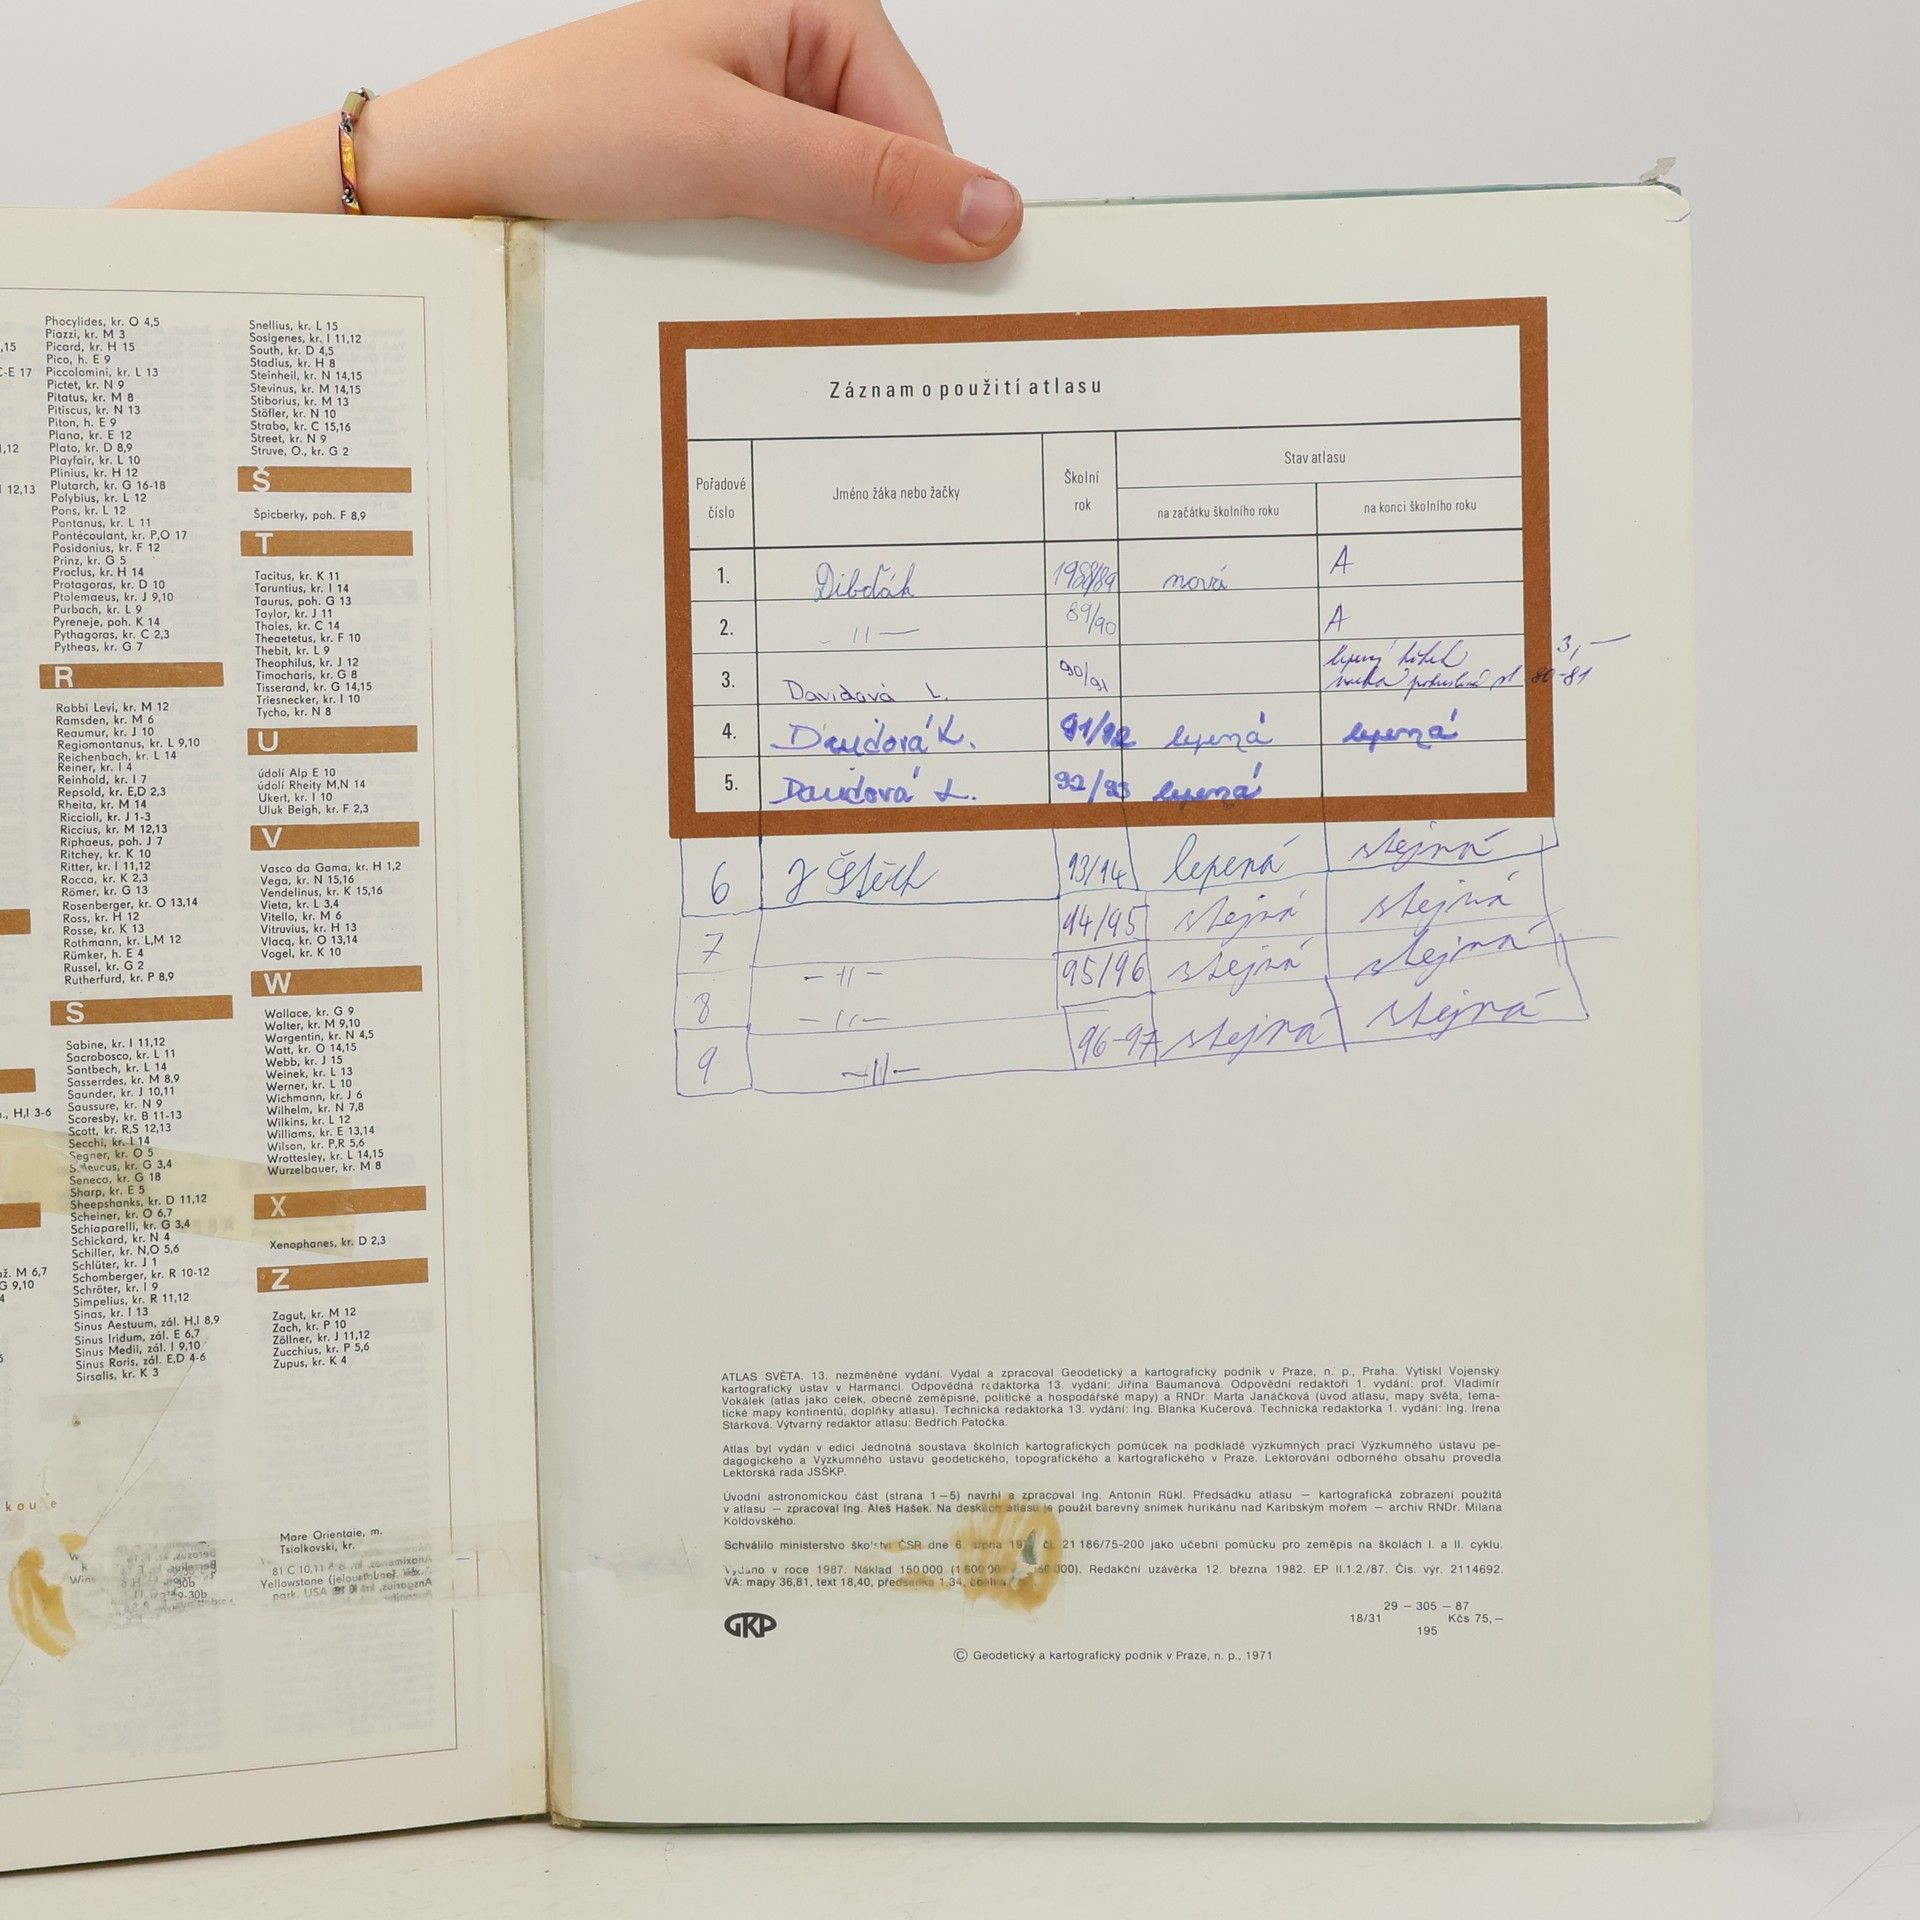 ,15
C-E 17
1,12
12,13
., H,I 3-6
až. M 6,7
G 9,10
4
6
Phocylides, kr. O 4,5
Piazzi, kr. M 3
Picard, kr. H 15
Pico, h. E 9
Piccolomini, kr. L 13
Pictet, kr. N 9
Pitatus, kr. M 8
Pitiscus, kr. N 13
Piton, h. E 9
Plana, kr. E 12
Plato, kr. D 8,9
Playfair, kr. L 10
Plinius, kr. H 12
Plutarch, kr. G 16-18
Polybius, kr. L 12
Pons, kr. L 12
Pontanus, kr. L 11
Pontécoulant, kr. P,O 17
Posidonius, kr. F 12
Prinz, kr. G 5
Proclus, kr. H 14
Protagoras, kr. D 10
Ptolemaeus, kr. J 9,10
Purbach, kr. L 9
Pyreneje, poh. K 14
Pythagoras, kr. C 2,3
Pytheas, kr. G 7
R
Rabbi Levi, kr. M 12
Ramsden, kr. M 6
Reaumur, kr. J 10
Regiomontanus, kr. L 9,10
Reichenbach, kr. L 14
Reiner, kr. I 4
Reinhold, kr. I 7
Repsold, kr. E,D 2,3
Rheita, kr. M 14
Riccioli, kr. J 1-3
Riccius, kr. M 12,13
Riphaeus, poh. J 7
Ritchey, kr. K 10
Ritter, kr. I 11,12
Rocca, kr. K 2,3
Römer, kr. G 13
Rosenberger, kr. O 13,14
Ross, kr. H 12
Rosse, kr. K 13
Rothmann, kr. L,M 12
Rümker, h. E 4
Russel, kr. G 2
Rutherfurd, kr. P 8,9
S
Sabine, kr. I 11,12
Sacrobosco, kr. L 11
Santbech, kr. L 14
Sasserrdes, kr. M 8,9
Saunder, kr. J 10,11
Saussure, kr. N 9
Scoresby, kr. B 11-13
Scott, kr. R,S 12,13
Secchi, kr. I 14
Segner, kr. O 5
Seleucus, kr. G 3,4
Seneca, kr. G 18
Sharp, kr. E 5
Sheepshanks, kr. D 11,12
Scheiner, kr. O 6,7
Schiaparelli, kr. G 3,4
Schickard, kr. N 4
Schiller, kr. N,O 5,6
Schlüter, kr. J 1
Schomberger, kr. R 10-12
Schröter, kr. I 9
Simpelius, kr. R 11,12
Sinas, kr. I 13
Sinus Aestuum, zál. H,I 8,9
Sinus Iridum, zál. E 6,7
Sinus Medii, zál. I 9,10
Sinus Roris, zál. E,D 4-6
Sirsalis, kr. K 3
Snellius, kr. L 15
Sosigenes, kr. I 11,12
South, kr. D 4,5
Stadius, kr. H 8
Steinheil, kr. N 14,15
Stevinus, kr. M 14,15
Stiborius, kr. M 13
Stöfler, kr. N 10
Strabo, kr. C 15,16
Street, kr. N 9
Struve, O., kr. G 2
Š
Špicberky, poh. F 8,9
T
Tacitus, kr. K 11
Taruntius, kr. I 14
Taurus, poh. G 13
Taylor, kr. J 11
Thales, kr. C 14
Theaetetus, kr. F 10
Thebit, kr. L 9
Theophilus, kr. J 12
Timocharis, kr. G 8
Tisserand, kr. G 14,15
Triesnecker, kr. I 10
Tycho, kr. N 8
U
údolí Alp E 10
údolí Rheity M,N 14
Ukert, kr. I 10
Uluk Beigh, kr. F 2,3
V
Vasco da Gama, kr. H 1,2
Vega, kr. N 15,16
Vendelinus, kr. K 15,16
Vieta, kr. L 3,4
Vitello, kr. M 6
Vitruvius, kr. H 13
Vlacq, kr. O 13,14
Vogel, kr. K 10
W
Wallace, kr. G 9
Walter, kr. M 9,10
Wargentin, kr. N 4,5
Watt, kr. O 14,15
Webb, kr. J 15
Weinek, kr. L 13
Werner, kr. L 10
Wichmann, kr. J 6
Wilhelm, kr. N 7,8
Wilkins, kr. L 12
Williams, kr. E 13,14
Wilson, kr. P,R 5,6
Wrottesley, kr. L 14,15
Wurzelbauer, kr. M 8
X
Xenophanes, kr. D 2,3
Z
Zagut, kr. M 12
Zach, kr. P 10
Zöllner, kr. J 11,12
Zucchius, kr. P 5,6
Zupus, kr. K 4
Mare Orientale, m.
Tsiolkovski, kr.
81 C 10,11
Yellowstone
park, USA
Záznam o použití atlasu
Pořadové číslo
Jméno žáka nebo žačky
Školní rok
Stav atlasu
na začátku školního roku
na konci školního roku
1. Dibďák 1988/89 nová A
2. – 11 — 89/90 A
3. Davidová L. 90/91 lepený 80-81 3,—
4. Davidová L. 91/92 lepená lepená
5. Davidová L. 92/93 lepená
6 J Štěch 13/14 lepená stejná
7 – 11 – 94/95 stejná stejná
8 – 11 – 95/96 stejná stejná
9 – 11 – 96-97 stejná stejná
ATLAS SVĚTA. 13. nezměněné vydání. Vydal a zpracoval Geodetický a kartografický podnik v Praze, n. p., Praha. Vytiskl Vojenský
kartografický ústav v Harmanci. Odpovědná redaktorka 13. vydání: Jiřina Baumanová. Odpovědní redaktoři 1. vydání: prof. Vladimír
Vokálek (atlas jako celek, obecně zeměpisné, politické a hospodářské mapy) a RNDr. Marta Janáčková (úvod atlasu, mapy světa, tema-
tické mapy kontinentů, doplňky atlasu). Technická redaktorka 13. vydání: Ing. Blanka Kučerová. Technická redaktorka 1. vydání: Ing. Irena
Stárková. Výtvarný redaktor atlasu: Bedřich Patočka.
Atlas byl vydán v edici Jednotná soustava školních kartografických pomůcek na podkladě výzkumných prací Výzkumného ústavu pe-
dagogického a Výzkumného ústavu geodetického, topografického a kartografického v Praze. Lektorování odborného obsahu provedla
Lektorská rada JSŠKP.
Úvodní astronomickou část (strana 1–5) navrhl a zpracoval Ing. Antonín Rükl. Předsádku atlasu — kartografická zobrazení použitá
v atlasu — zpracoval Ing. Aleš Hašek. Na deskách atlasu je použit barevný snímek hurikánu nad Karibským mořem — archiv RNDr. Milana
Koldovského.
Schválilo ministerstvo školství ČSR dne 6. srpna čj. 21 186/75-200 jako učební pomůcku pro zeměpis na školách I. a II. cyklu.
Vydáno v roce 1987. Náklad 150 000. Redakční uzávěrka 12. března 1982. EP II.1.2./87. Čís. výr. 2114692.
VA: mapy 36,81, text 18,40, předsádka 1,34,
29 – 305 – 87
18/31 Kčs 75,–
195
GKP
© Geodetický a kartografický podnik v Praze, n. p., 1971